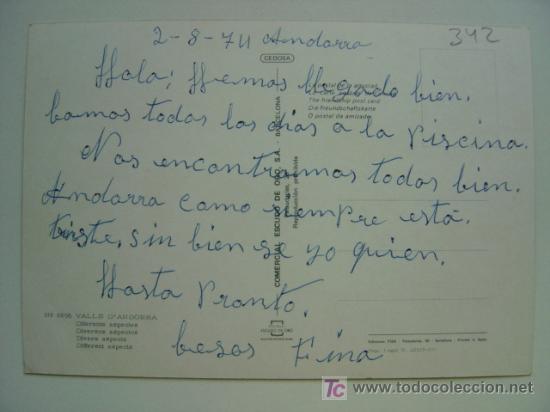 2-8-74 Andorra
342
CEDOSA
Hola; Hemos llegado bien.
La postal de la amistad
The friendship post card
Die Freundschaftskarte
O postal da amizade
bamos todos los dias a la piscina.
Nos encontramos todos bien.
Andorra como siempre está
triste, sin bien se yo quien.
Hasta Pronto.
besos Fina
COMERCIAL ESCUDO DE ORO, S.A. - BARCELONA
Reproducción prohibida
VALLS D'ANDORRA
Diversos aspectos
Divers aspects
Different aspects
ESCUDO DE ORO
todocoleccion
www.todocoleccion.net